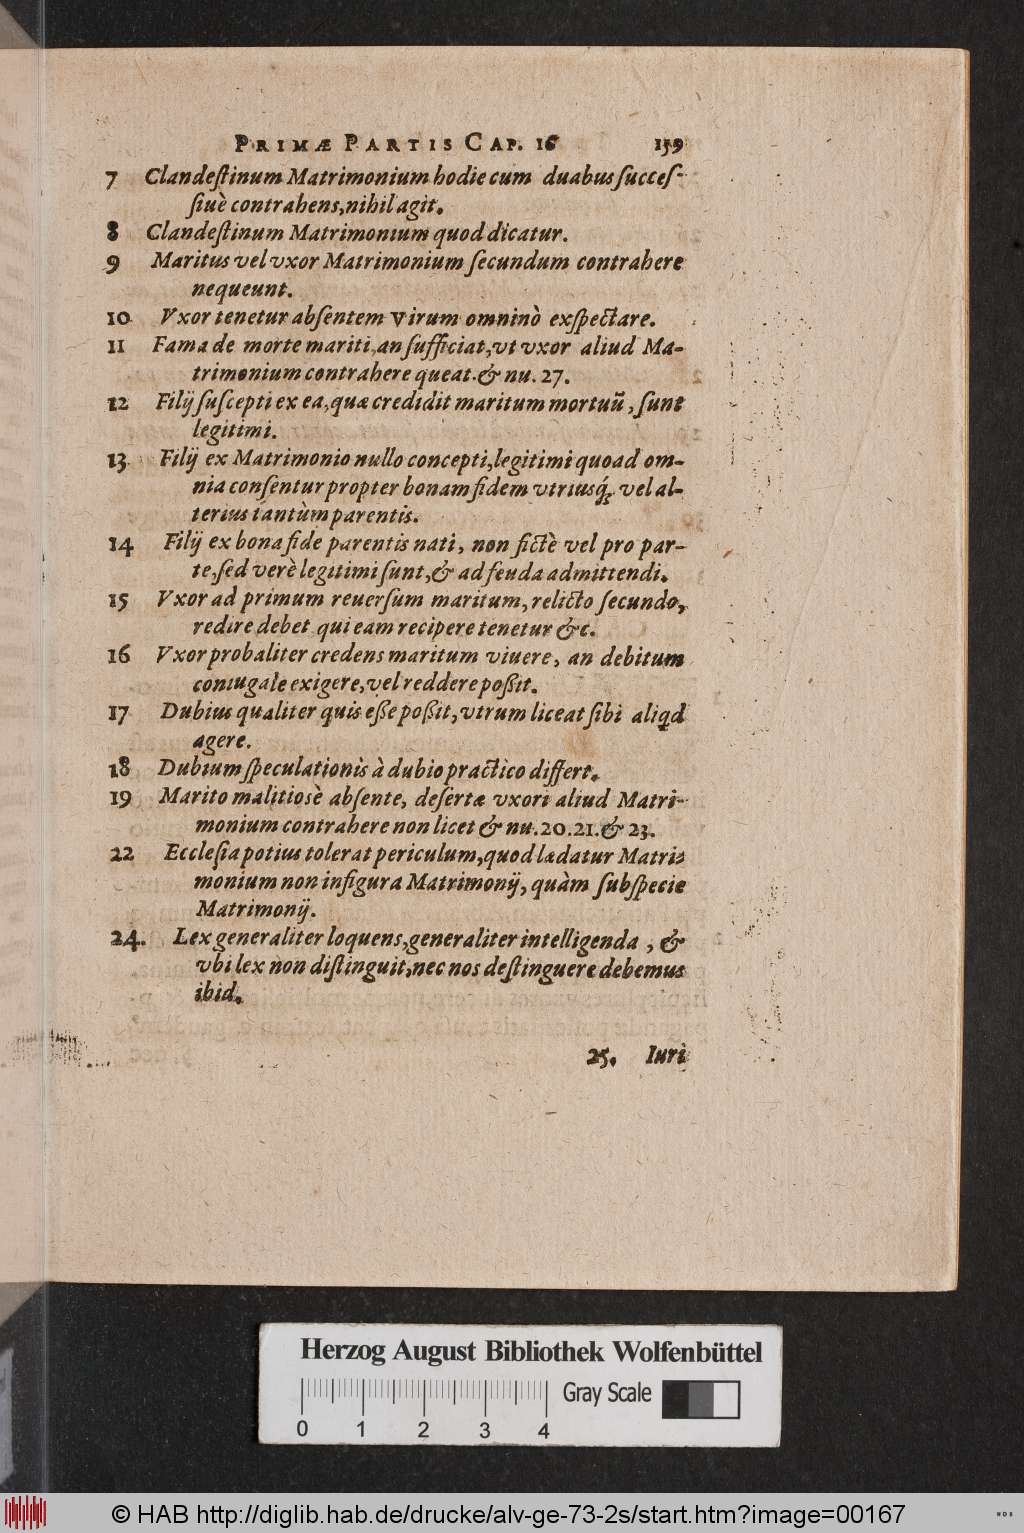 PRIMÆ PARTIS CAP. 16 159
7 Clandeſtinum Matrimonium hodie cum duabus ſucceſ-
ſiuè contrahens, nihil agit.
8 Clandeſtinum Matrimonium quod dicatur.
9 Maritus vel vxor Matrimonium ſecundum contrahere
nequeunt.
10 Vxor tenetur abſentem virum omninò exſpectare.
11 Fama de morte mariti, an ſufficiat, vt vxor aliud Ma-
trimonium contrahere queat. & nu. 27.
12 Filij ſuſcepti ex ea, quæ credidit maritum mortuũ, ſunt
legitimi.
13 Filij ex Matrimonio nullo concepti, legitimi quoad om-
nia conſentur propter bonam fidem vtriusq́; vel al-
terius tantùm parentis.
14 Filij ex bona fide parentis nati, non fictè vel pro par-
te, ſed verè legitimi ſunt, & ad feuda admittendi.
15 Vxor ad primum reuerſum maritum, relicto ſecundo,
redire debet qui eam recipere tenetur &c.
16 Vxor probaliter credens maritum viuere, an debitum
coniugale exigere, vel reddere poßit.
17 Dubius qualiter quis eße poßit, vtrum liceat ſibi aliqd
agere.
18 Dubium ſpeculationis à dubio practico differt.
19 Marito malitiosè abſente, deſertæ vxori aliud Matri-
monium contrahere non licet & nu. 20. 21. & 23.
22 Eccleſia potius tolerat periculum, quod lædatur Matri-
monium non in figura Matrimonij, quàm ſub ſpecie
Matrimonij.
24. Lex generaliter loquens, generaliter intelligenda, &
vbi lex non diſtinguit, nec nos deſtinguere debemus
ibid.
25. Iuri
Herzog August Bibliothek Wolfenbüttel
Gray Scale
0 1 2 3 4
© HAB http://diglib.hab.de/drucke/alv-ge-73-2s/start.htm?image=00167